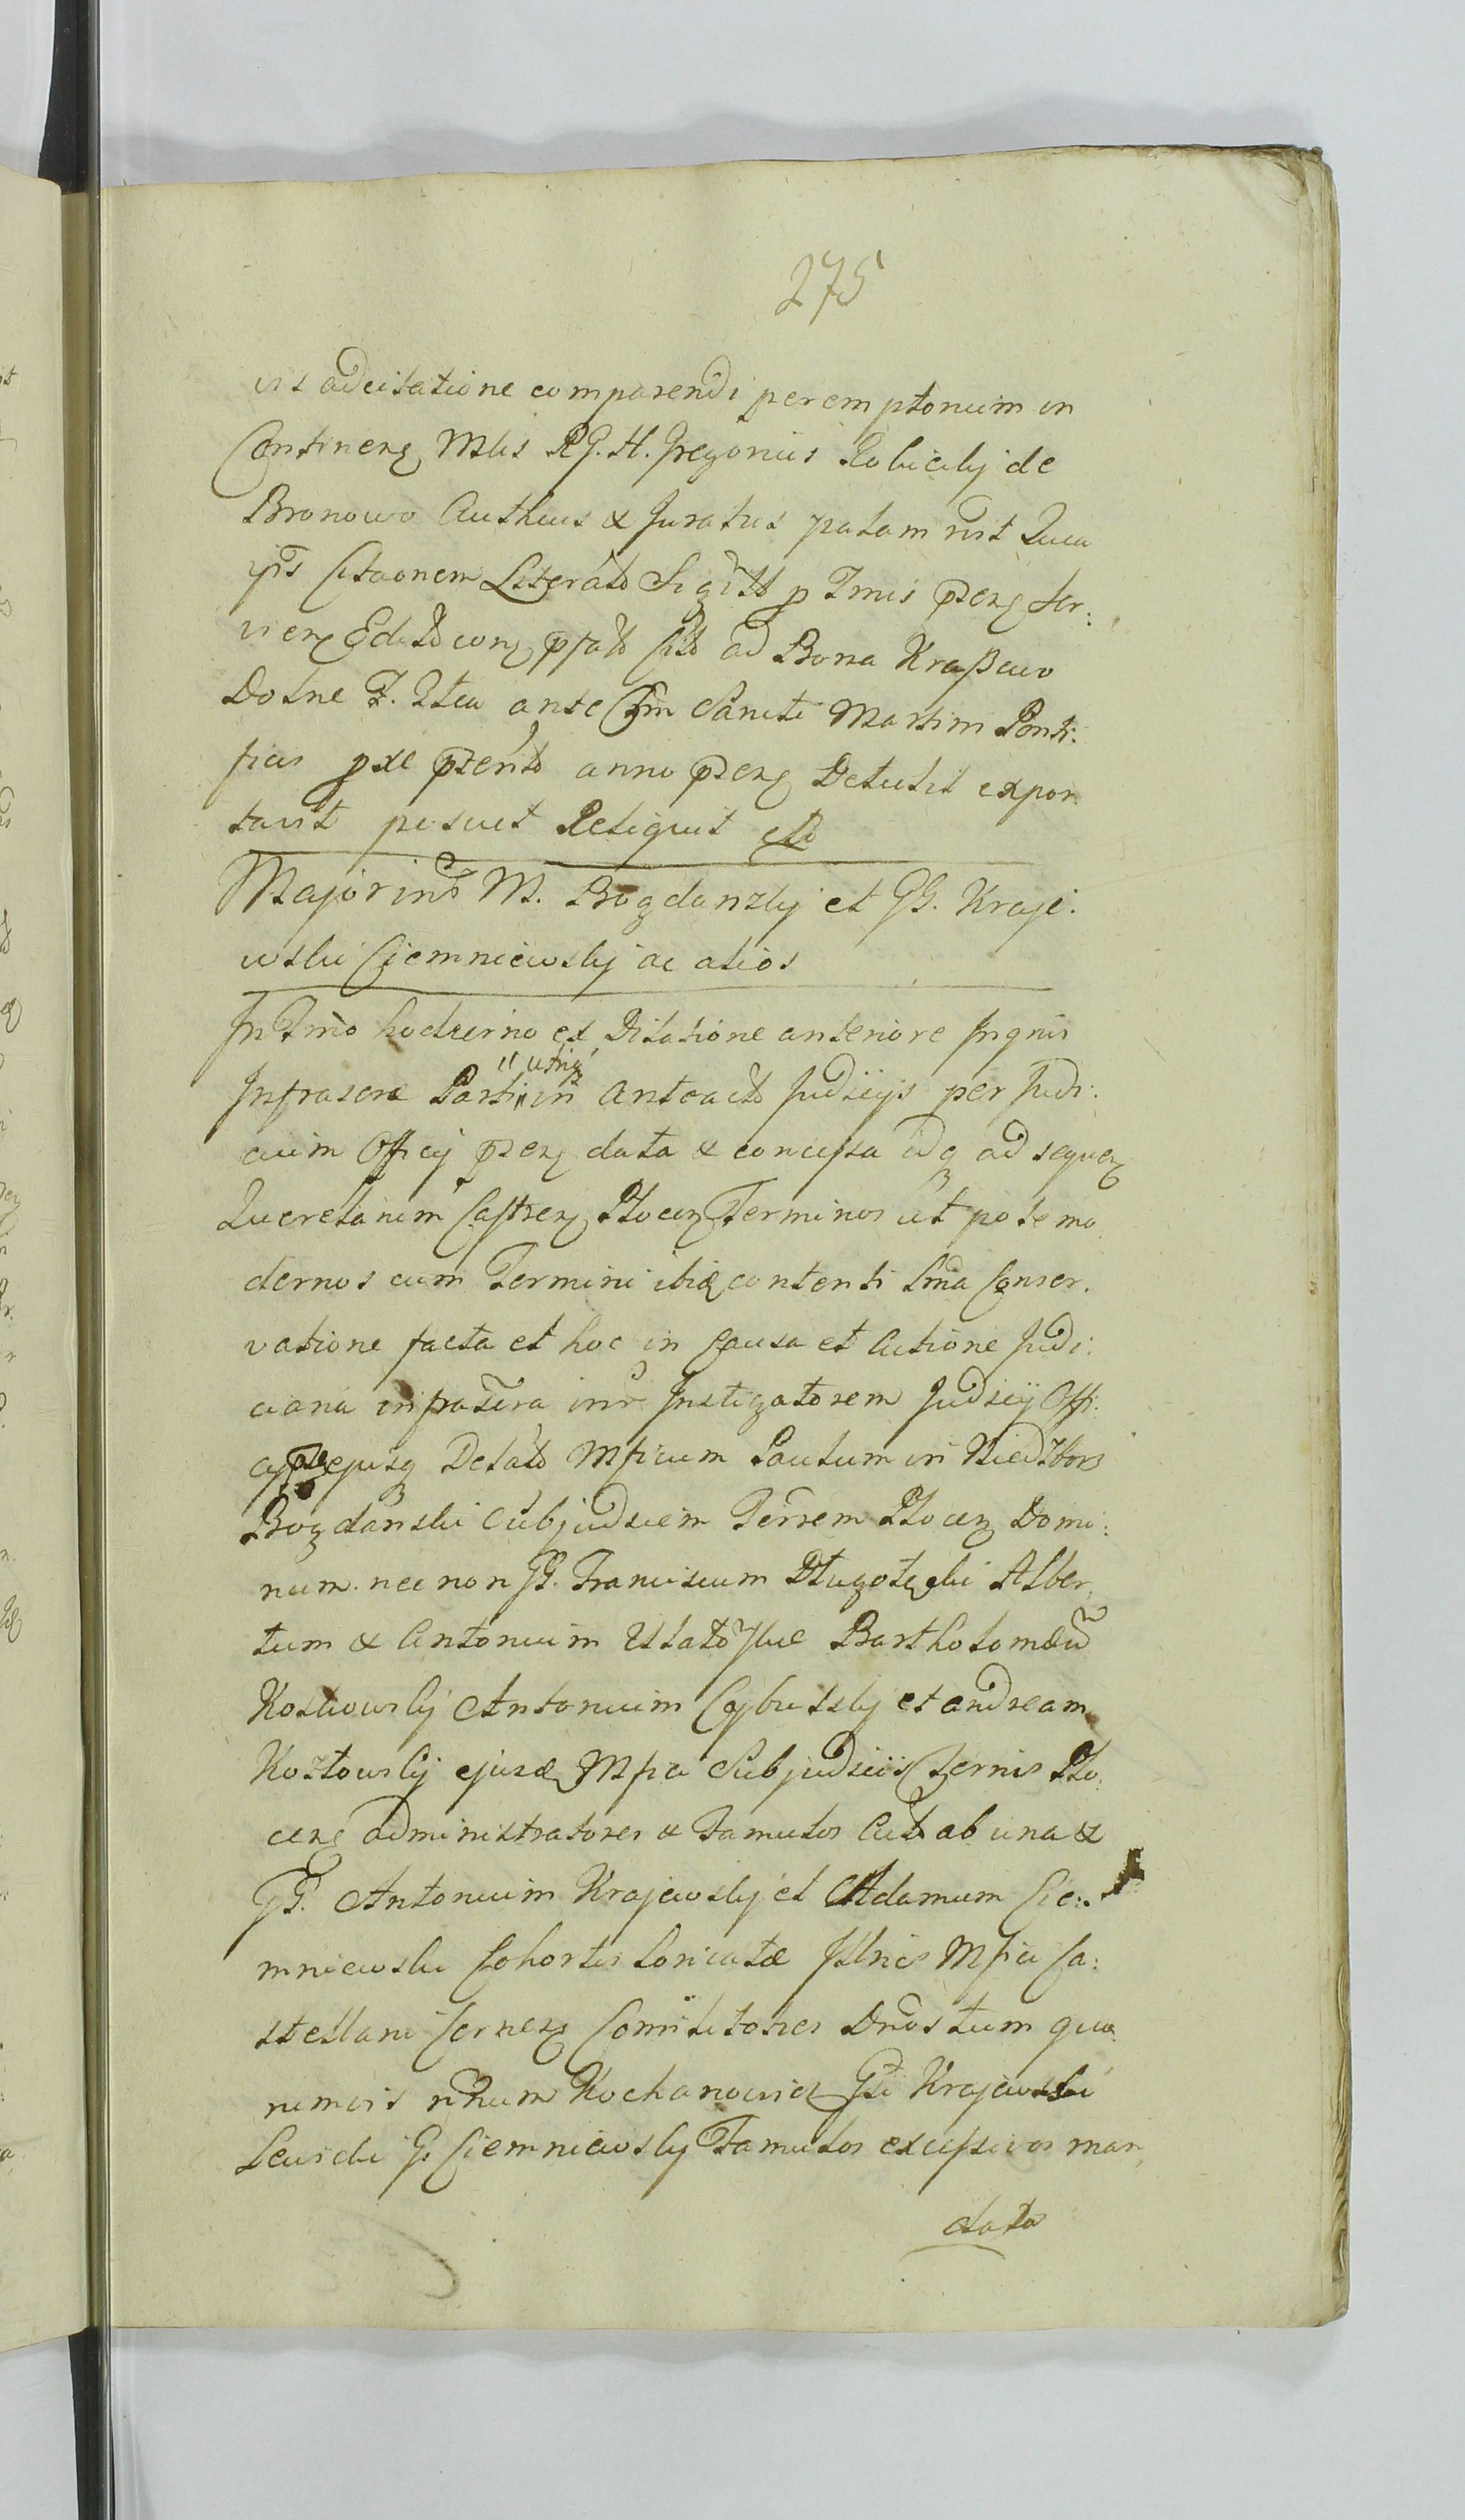 275
vis adcitatione comparendi peremptorium in
Continenz Mltis RG. H. Gregorius Robicky de
Bronowo Authcus & Juratus palam rist Quia
ips Citaonem Literato Sigill p Tmis prenz ser:
vienz Edito conz pfato Cito ad Bona Kraszewo
Dolne F. 2ta ante Fm Sancti Martini Ponti:
ficis pxe pterito anno prenz Detulit expor
tavit posuit Reliquit etc
Major ind M. Bogdanzky et GG. Kraje:
wski Ciemniewsky ac alios
In Tmo hodierno ex Dilatione anteriore pignis
Infrascr Parti in antoacto Judiciis per Judi:
utriq
cium Officij prenz data & concessa idq ad sequenz
Querelarum Castrenz Plocenz Terminos ut pote mo
dernos cum Termini ibidz contenti Smda Conser.
vatione facta et hoc in Causa et Actione Judi:
ciaria infrascra inr Instigatorem Judicij Offi:
cij ejusq Delato Mficum Paulum in Niedzborz
Bogdanski Subjudicem Terrem Plocenz Domi:
num. nec non GG. Franciscum Dlugolęcki Alber,
tum & Antonium Bartholomaeu
Koskowsky Antonium Cybulsky et Andream
Kozlowsky ejusdz Mfici Subjudicis Terris Plo.
cenz administratores & Famulos Act ab una &
GG. Antonium Krajewsky et Adamum Cie:
mniewski Cohortis Loricatae Illris Mfici Ca:
stellani Cernenz Comilitones Dnos tum qua
nimvis nnum Kochanowicz Gsi Krajewski
Lewicki G. Ciemniewsky Famulos excessivos man,
data